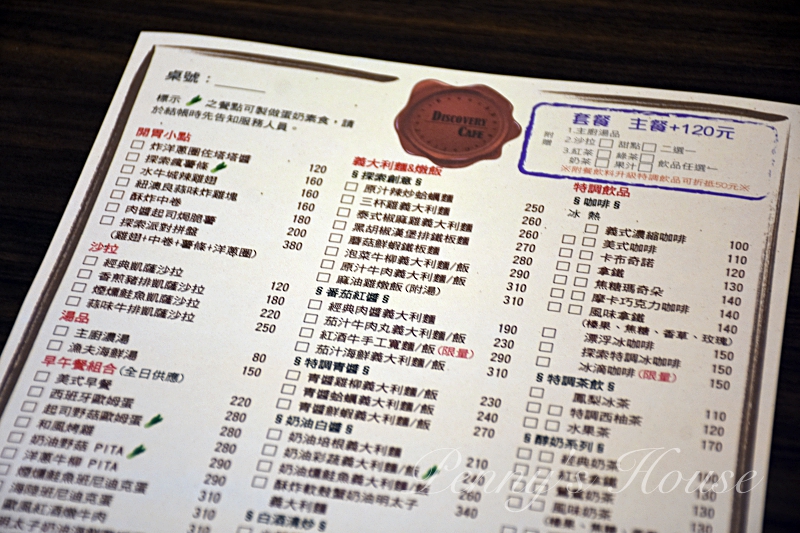 桌號：
標示 之餐點可製做蛋奶素食，請
於結帳時先告知服務人員。
DISCOVERY
CAFE
套餐 主餐+120元
附贈
1.主廚湯品
2.沙拉 甜點 二選一
3.紅茶 綠茶
奶茶 果汁 飲品任選一
※附餐飲料升級特調飲品可折抵50元※
開胃小點
炸洋蔥圈佐塔塔醬 120
探索瘋薯條 160
水牛城辣雞翅 160
紐澳良蒜味炸雞塊 160
酥炸中卷 180
肉醬起司焗脆薯 200
探索派對拼盤 380
(雞翅+中卷+薯條+洋蔥圈)
沙拉
經典凱薩沙拉 120
香煎豬排凱薩沙拉 180
煙燻鮭魚凱薩沙拉 220
蒜味牛排凱薩沙拉 250
湯品
主廚濃湯 80
漁夫海鮮湯 150
早午餐組合(全日供應)
美式早餐 220
西班牙歐姆蛋 280
起司野菇歐姆蛋 280
和風烤雞 280
奶油野菇 PITA 290
洋蔥牛柳 PITA 290
煙燻鮭魚班尼迪克蛋 310
海陸班尼迪克蛋 310
歐風紅酒燉牛肉 310
義大利麵&燉飯
§ 探索創意 §
原汁辣炒蛤蠣麵 250
三杯雞義大利麵 260
泰式椒麻雞義大利麵 260
黑胡椒漢堡排鐵板麵 270
蘑菇鮮蝦鐵板麵 280
泡菜牛柳義大利麵/飯 290
原汁牛肉義大利麵/飯 310
麻油雞燉飯(附湯) 310
§ 番茄紅醬 §
經典肉醬義大利麵 190
茄汁牛肉丸義大利麵/飯 230
紅酒牛手工寬麵/飯(限量) 290
茄汁海鮮義大利麵/飯 310
§ 特調青醬 §
青醬雞柳義大利麵/飯 230
青醬蛤蠣義大利麵/飯 240
青醬鮮蝦義大利麵/飯 270
§ 奶油白醬 §
奶油培根義大利麵 210
奶油彩蔬義大利麵/飯 240
奶油燻鮭魚義大利麵/飯 260
酥炸軟殼蟹奶油明太子 340
義大利麵
§ 白酒清炒 §
特調飲品
§ 咖啡 §
冰 熱
義式濃縮咖啡 100
美式咖啡 110
卡布奇諾 120
拿鐵 130
焦糖瑪奇朵 140
摩卡巧克力咖啡 140
風味拿鐵 140
(榛果、焦糖、香草、玫瑰)
漂浮冰咖啡 150
探索特調冰咖啡 150
冰滴咖啡(限量) 150
§ 特調茶飲 §
鳳梨冰茶 110
特調西柚茶 120
水果茶 170
§ 醇奶系列 §
經典奶茶
紅茶拿鐵
鴛鴦奶茶 130
風味奶茶 130
Penny's House